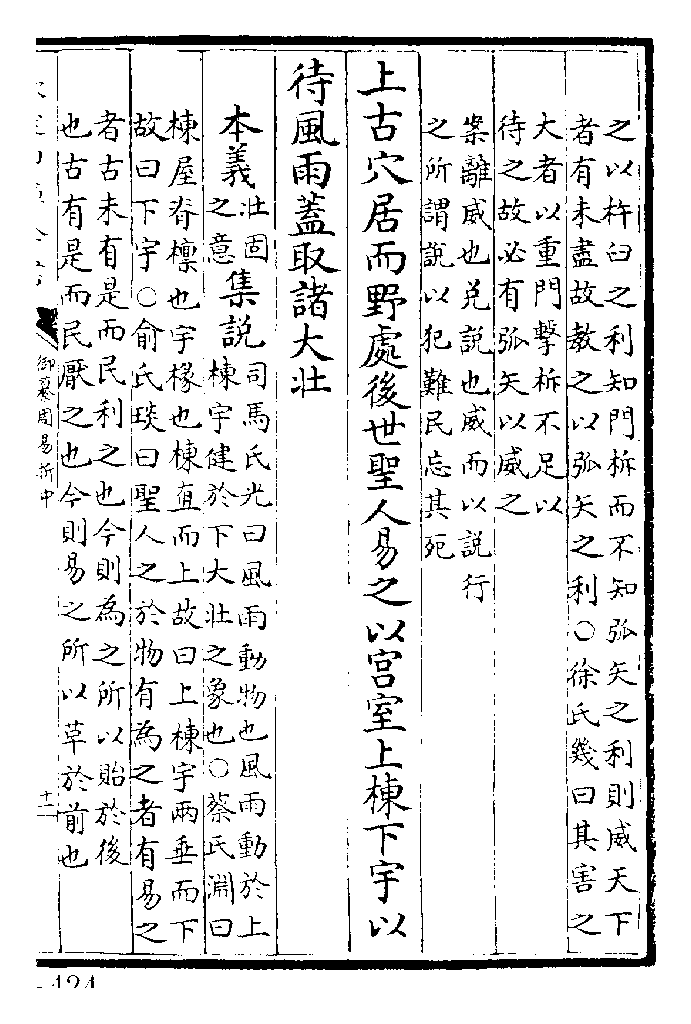 之以杵臼之利知門柝而不知弧矢之利則威天下
者有未盡故教之以弧矢之利○徐氏幾曰其害之
大者以重門擊柝不足以
待之故必有弧矢以威之
案離威也兌說也威而以說行
之所謂說以犯難民忘其死
上古穴居而野處後世聖人易之以宮室上棟下宇以
待風雨蓋取諸大壯
本義
壯固
之意
集說
司馬氏光曰風雨動物也風雨動於上
棟宇健於下大壯之象也○蔡氏淵曰
棟屋脊檁也宇椽也棟直而上故曰上棟宇兩垂而下
故曰下宇○俞氏琰曰聖人之於物有為之者有易之
者古未有是而民利之也今則為之所以貽於後
也古有是而民厭之也今則易之所以草於前也
御纂周易折中
十二